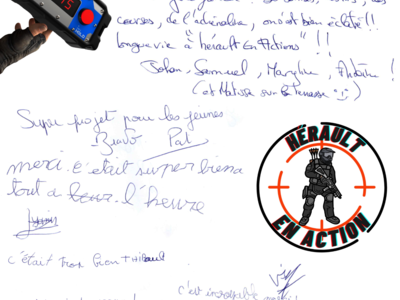 courses, de l'adrénaline, on s'est bien éclaté !!
longue vie à "hérault En Actions" !!
Johan, Samuel, Marylin,
(et Matisse sur la terrasse :-))
Super projet pour les jeunes
Bravo Pat
merci. c'était super bien a
tout a l'heure
c'était trop bien Thibault
c'est incroyable
HÉRAULT
EN ACTION
15